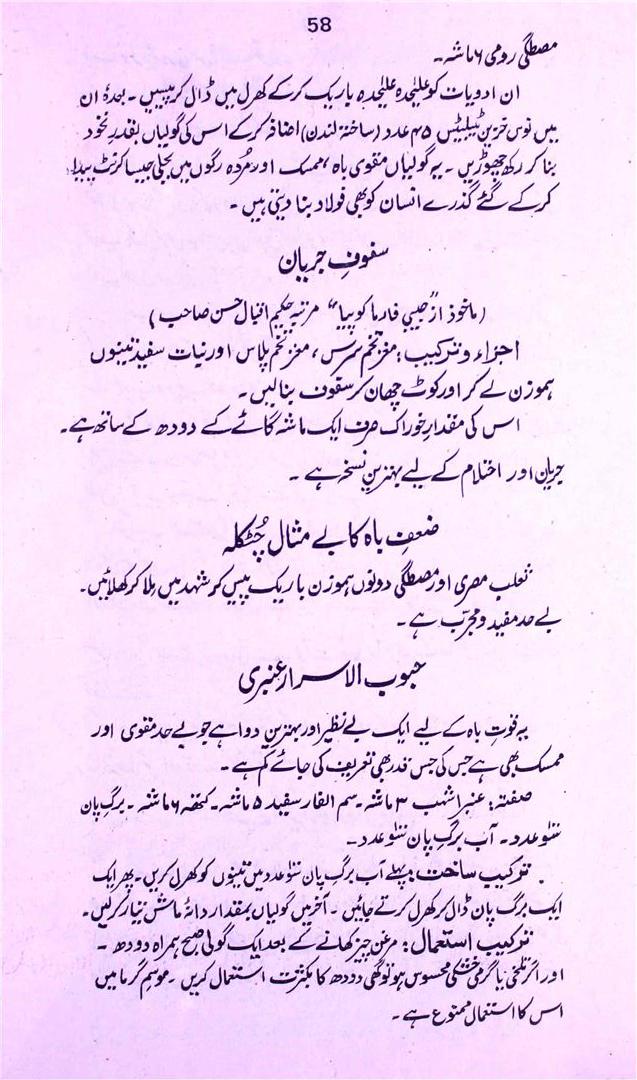 58
مصطگی رومی ۶ ماشہ۔
ان ادویات کو علیٰحدہ علیٰحدہ باریک کر کے کھرل میں ڈال کر پیسیں۔ بعدہٗ ان
میں نوس ترین ٹیبلیٹس ۴۵ عدد (ساختہ لندن) اضافہ کر کے اس کی گولیاں بقدرِ نخود
بنا کر رکھ چھوڑیں۔ یہ گولیاں مقوی باہ، ممسک اور مُردہ رگوں میں بجلی جیسا کرنٹ پیدا
کر کے گئے گذرے انسان کو بھی فولاد بنا دیتی ہیں۔
سفوفِ جریان
(ماخوذ از "حبیبی فارماکوپیا" مرتبہ حکیم اقبال حسن صاحب)
اجزاء و ترکیب: مغز تخم سرس، مغز تخم پلاس اور نبات سفید تینوں
ہموزن لے کر اور کوٹ چھان کر سفوف بنا لیں۔
اس کی مقدارِ خوراک صرف ایک ماشہ گائے کے دودھ کے ساتھ ہے۔
جریان اور احتلام کے لیے بہترین نسخہ ہے۔
ضعفِ باہ کا بے مثال چُٹکلہ
ثعلب مصری اور مصطگی دونوں ہموزن باریک پیس کر شہد میں ملا کر کھلائیں۔
بے حد مفید و مجرّب ہے۔
حبوب الاسرار عنبری
یہ قوتِ باہ کے لیے ایک بے نظیر اور بہترین دوا ہے جو بے حد مقوی اور
ممسک بھی ہے جس کی جس قدر بھی تعریف کی جائے کم ہے۔
صفتہ: عنبر اشہب ۳ ماشہ۔ سم الفار سفید ۵ ماشہ۔ کتھہ ۶ ماشہ۔ برگِ پان
سَو عدد۔ آب برگِ پان سَو عدد۔
ترکیب ساخت: پہلے آب برگِ پان سَو عدد میں تینوں کو کھرل کریں۔ پھر ایک
ایک برگ پان ڈال کر کھرل کرتے جائیں۔ آخر میں گولیاں بمقدار دانۂ ماش تیار کر لیں۔
ترکیب استعمال: مرغن چیز کھانے کے بعد ایک گولی صبح ہمراہ دودھ۔
اور اگر تلخی یا گرمی خشکی محسوس ہو تو گھی دودھ کا بکثرت استعمال کریں۔ موسمِ گرما میں
اس کا استعمال ممنوع ہے۔